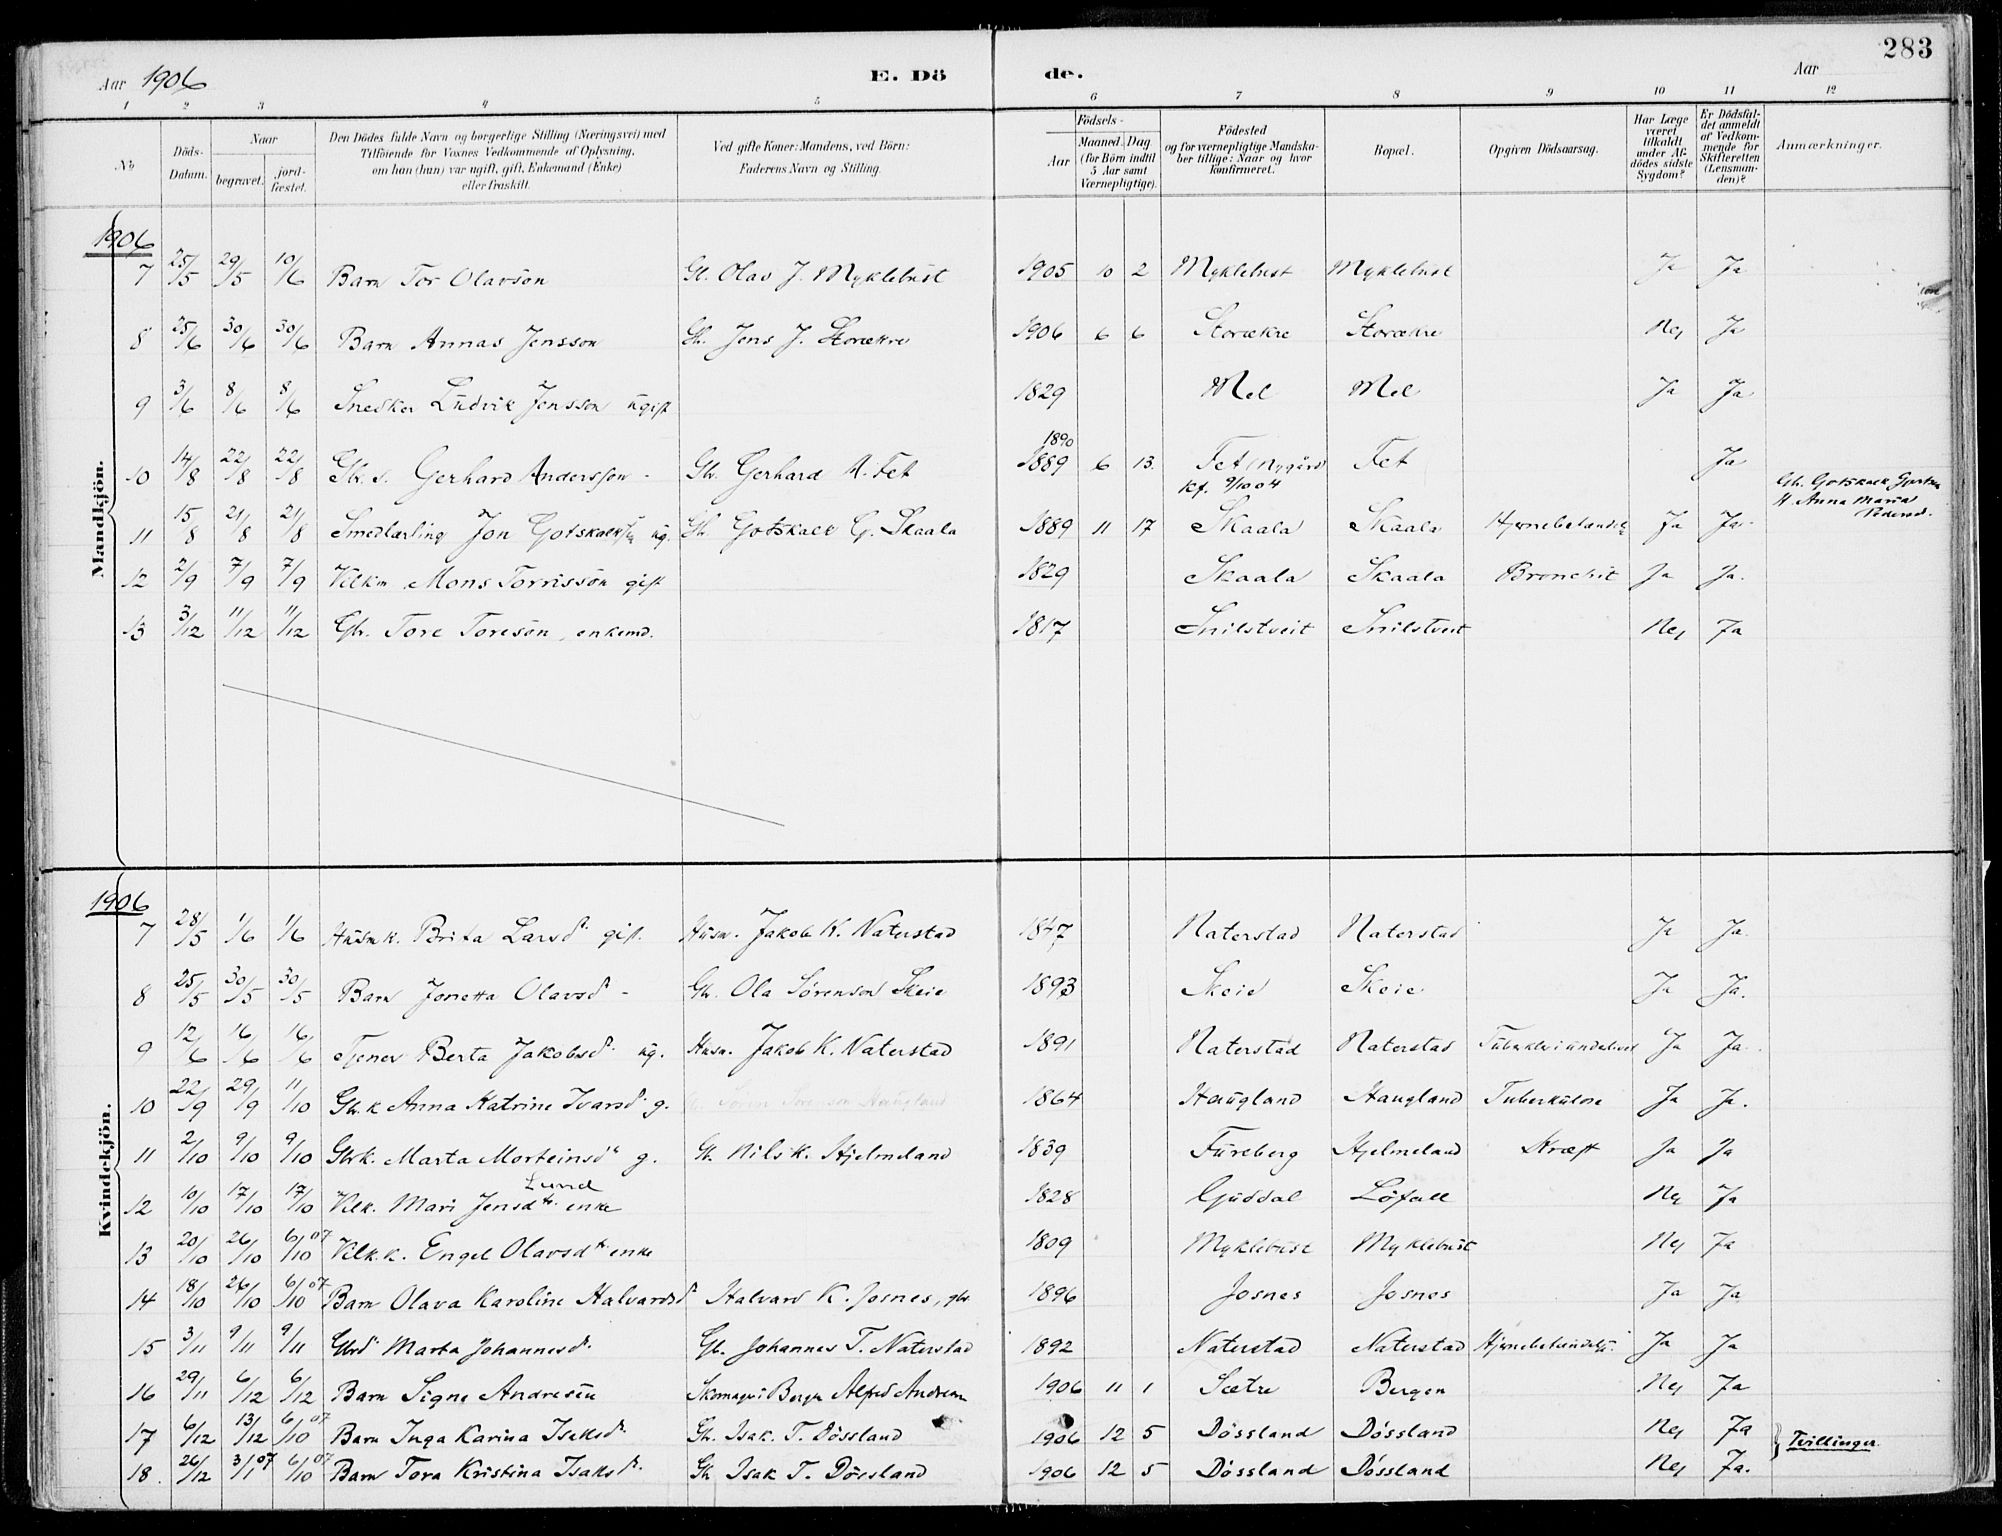 283
Aar 1906 E. Döde. Aar
1 2 3 4 5 6 7 8 9 10 11 12
No Döds-Datum. Naar begravet. jordfæstet. Den Dödes fulde Navn og borgerlige Stilling (Næringsvei) med Tilföiende for Voxnes Vedkommende af Oplysning, om han (hun) var ugift, gift, Enkemand (Enke) eller fraskilt. Ved gifte Koner: Mandens, ved Börn: Faderens Navn og Stilling. Födsels- Aar Maaned. Dag (for Börn indtil 5 Aar samt Værnepligtige). Födested og for værnepligtige Mandskaber tillige: Naar og hvor konfirmeret. Bopæl. Opgiven Dödsaarsag. Har Læge været tilkaldt under Afdödes sidste Sygdom? Er Dödsfaldet anmeldt af Vedkommende for Skifteretten (Lensmanden)? Anmærkninger.
Mandkjön.
1906
7 25/5 29/5 10/6 Barn Tor Olavson Gb. Olav J. Myklebust 1905 10 2 Myklebust Myklebust Ja Ja
8 25/6 30/6 30/6 Barn Annas Jensson Gb. Jens J. Storækre 1906 6 6 Storækre Storækre Nej Ja
9 3/6 8/6 8/6 Snedker Ludvik Jensson ugift 1829 Mel Mel Ja Ja
1890
10 14/8 22/8 22/8 Gbr. s. Gerhard Andersson - Gb. Gerhard A. Fet 1889 6 13. Fet (Nygård) Fet Ja
kf. 9/10 04
Gb. Gotskalk
H. Anna Maria Pedersd.
11 15/8 21/8 21/8 Smedlærling Jon Gotskalks. ug. Gb. Gotskalk G. Skaala 1889 11 17 Skaala Skaala Hjernebetændelse Ja Ja
12 2/9 7/9 7/9 Vilkm Mons Torrisson gift 1829 Skaala Skaala Bronchit Ja Ja.
13 3/12 11/12 11/12 Gbr. Tore Toreson, enkemd. 1817 Snilstveit Snilstveit Nej Ja
Kvindekjön.
1906
7 28/5 1/6 1/6 Husmk. Brita Larsdr gift. Husm. Jakob K. Naterstad 1847 Naterstad Naterstad Ja Ja
8 25/5 30/5 30/5 Barn Jonetta Olavsdr - Gb. Ola Sörenson Skeie 1893 Skeie Skeie Ja Ja.
9 12/6 16/6 16/6 Tjener Berta Jakobsdr ug. Husm. Jakob K. Naterstad 1891 Naterstad Naterstad Ja Ja
10 22/9 29/9 11/10 Gb.k Anna Katrine Ivarsdr g. Sörenson Haugland 1864 Haugland Haugland Tuberkulose Ja Ja.
11 2/10 9/10 9/10 Gbrk. Marta Morteinsdr g. Gb. Nils K. Hjelmeland 1839 Fureberg Hjelmeland Kræft Ja Ja
Lund
12 10/10 17/10 17/10 Vlk. Mari Jensdtr. enke 1828 Guddal Löfall Nej Ja
13 20/10 26/10 6/10 07 Vilk.k. Engel Olavsdtr enke 1809 Myklebust Myklebust Nej Ja
14 18/10 26/10 6/10 07 Barn Olava Karoline Halvardsdr Halvard K. Josnes, gbr 1896 Josnes Josnes Ja Ja
15 3/11 9/11 9/11 Gbrd Marta Johannesdr. Gb. Johannes T. Naterstad 1892 Naterstad Naterstad Hjernebetændelse Ja Ja
16 29/11 6/12 6/12 Barn Signe Andresen Skomager i Bergen Alfred Andresen 1906 11 1 Sætre Bergen Nej Ja
17 6/12 13/12 6/10 07 Barn Inga Karina Isaksdr. Gb. Isak T. Dössland 1906 12 5 Dössland Dössland Nej Ja
Tvillinger.
18. 26/12 3/1 07 6/10 07 Barn Tora Kristina Isaksdr. Gb Isak T. Dössland 1906 12 5 Dössland Dössland Nej Ja.